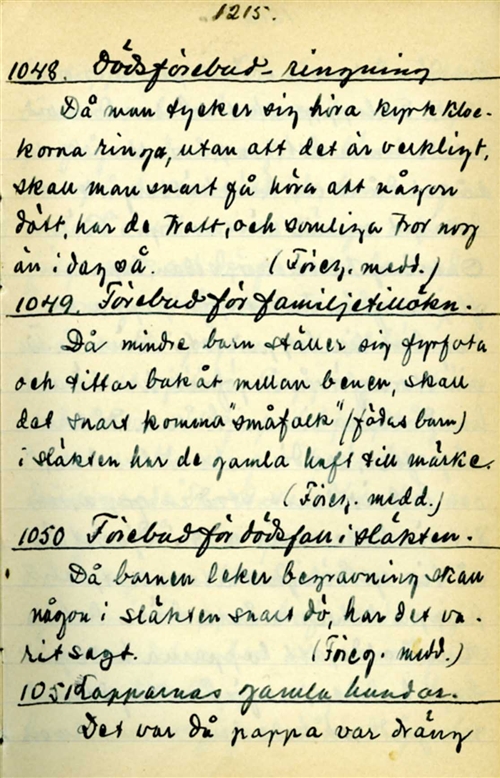 1215.
1048. Dödsförebud-ringning
Då man tycker sig höra kyrkkloc-
korna ringa, utan att det är verkligt,
skall man snart få höra att någon
dött, har de trott, och somliga tror nog
än i dag så. (Föreg. medd.)
1049. Förebud för familjetillökn.
Då mindre barn ställer sig fyrfota
och tittar bakåt mellan benen, skall
det snart komma "småfolk" (födas barn)
i släkten har de gamla haft till märke.
(Föreg. medd.)
1050 Förebud för dödsfall i släkten.
Då barnen leker begravning skall
någon i släkten snart dö, har det va-
rit sagt. (Föreg. medd.)
1051 Lapparnas gamla hundar.
Det var då pappa var dräng